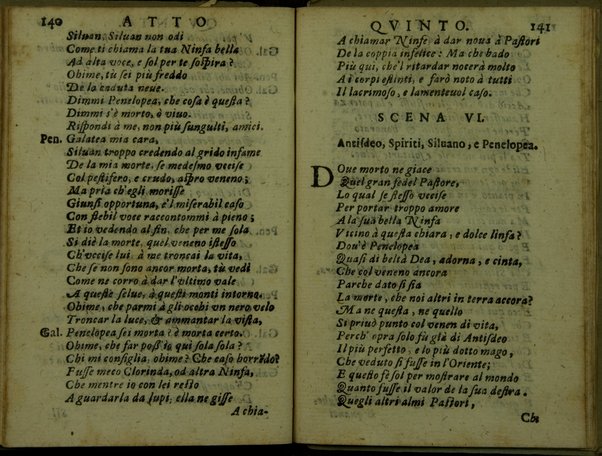 140 ATTO
Siluan Siluan non odi
Come ti chiama la tua Ninfa bella
Ad alta voce, e sol per te sospira?
Ohime, tù sei più freddo
De la caduta neue.
Dimmi Penelopea, che cosa è questa?
Dimmi s'è morto, ò viuo.
Rispondi à me, non più singulti, amici.
Pen. Galatea mia cara,
Siluan troppo credendo al grido infame
De la mia morte, se medesmo vccise
Col pestifero, e crudo, aspro veneno;
Ma pria ch'egli morisse
Giunsi opportuna, e'l miserabil caso
Con flebil voce raccontommi à pieno;
Et io vedendo al fin, che per me sola
Si diè la morte, quel veneno istesso
Ch'vccise lui à me troncai la vita,
Che se non sono ancor morta, tù vedi
Come ne corro à dar l'vltimo vale
A queste selue, à questi monti intorno.
Ohime, che parmi à gli occhi vn nero velo
Troncar la luce, & ammantar la vista,
Gal. Penelopea sei morta? è morta certo.
Ohime, che far poss'io qui sola sola?
Chi mi consiglia, ohime? Che caso horrido?
Fusse meco Clorinda, od altra Ninfa,
Che mentre io con lei resto
A guardarla da lupi, ella ne gisse
A chia-
QVINTO. 141
A chiamar Ninfe à dar noua à Pastori
De la coppia infelice: Ma che bado
Più quì, che'l ritardar nocerà molto
A i corpi estinti, e farò noto à tutti
Il lacrimoso, e lamenteuol caso.
SCENA VI.
Antifdeo, Spiriti, Siluano, e Penelopea.
DOue morto ne giace
Quel gran fedel Pastore,
Lo qual se stesso vccise
Per portar troppo amore
A la sua bella Ninfa
Vicino à questa chiara, e dolce linfa?
Don'è Penelopea
Quasi di beltà Dea, adorna, e cinta,
Che col veneno ancora
Parche dato si sia
La morte, che noi altri in terra accora?
Ma ne questa, ne quello
Si priuò punto col venen di vita,
Perch' opra solo fù già di Antifdeo
Il più perfetto, e lo più dotto mago,
Che veduto si fusse in l'Oriente;
E questo fè sol per mostrare al mondo
Quanto fusse il valor de la sua destra.
Quegli altri almi Pastori,
Ch: